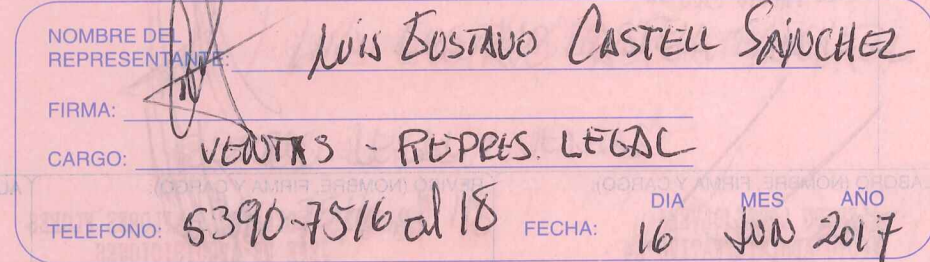 NOMBRE DEL
REPRESENTANTE: LUIS GUSTAVO CASTELL SÁNCHEZ
FIRMA:
CARGO: VENTAS - REPRES. LEGAL
DIA MES AÑO
TELEFONO: 5390-7516 al 18 FECHA: 16 JUN 2017